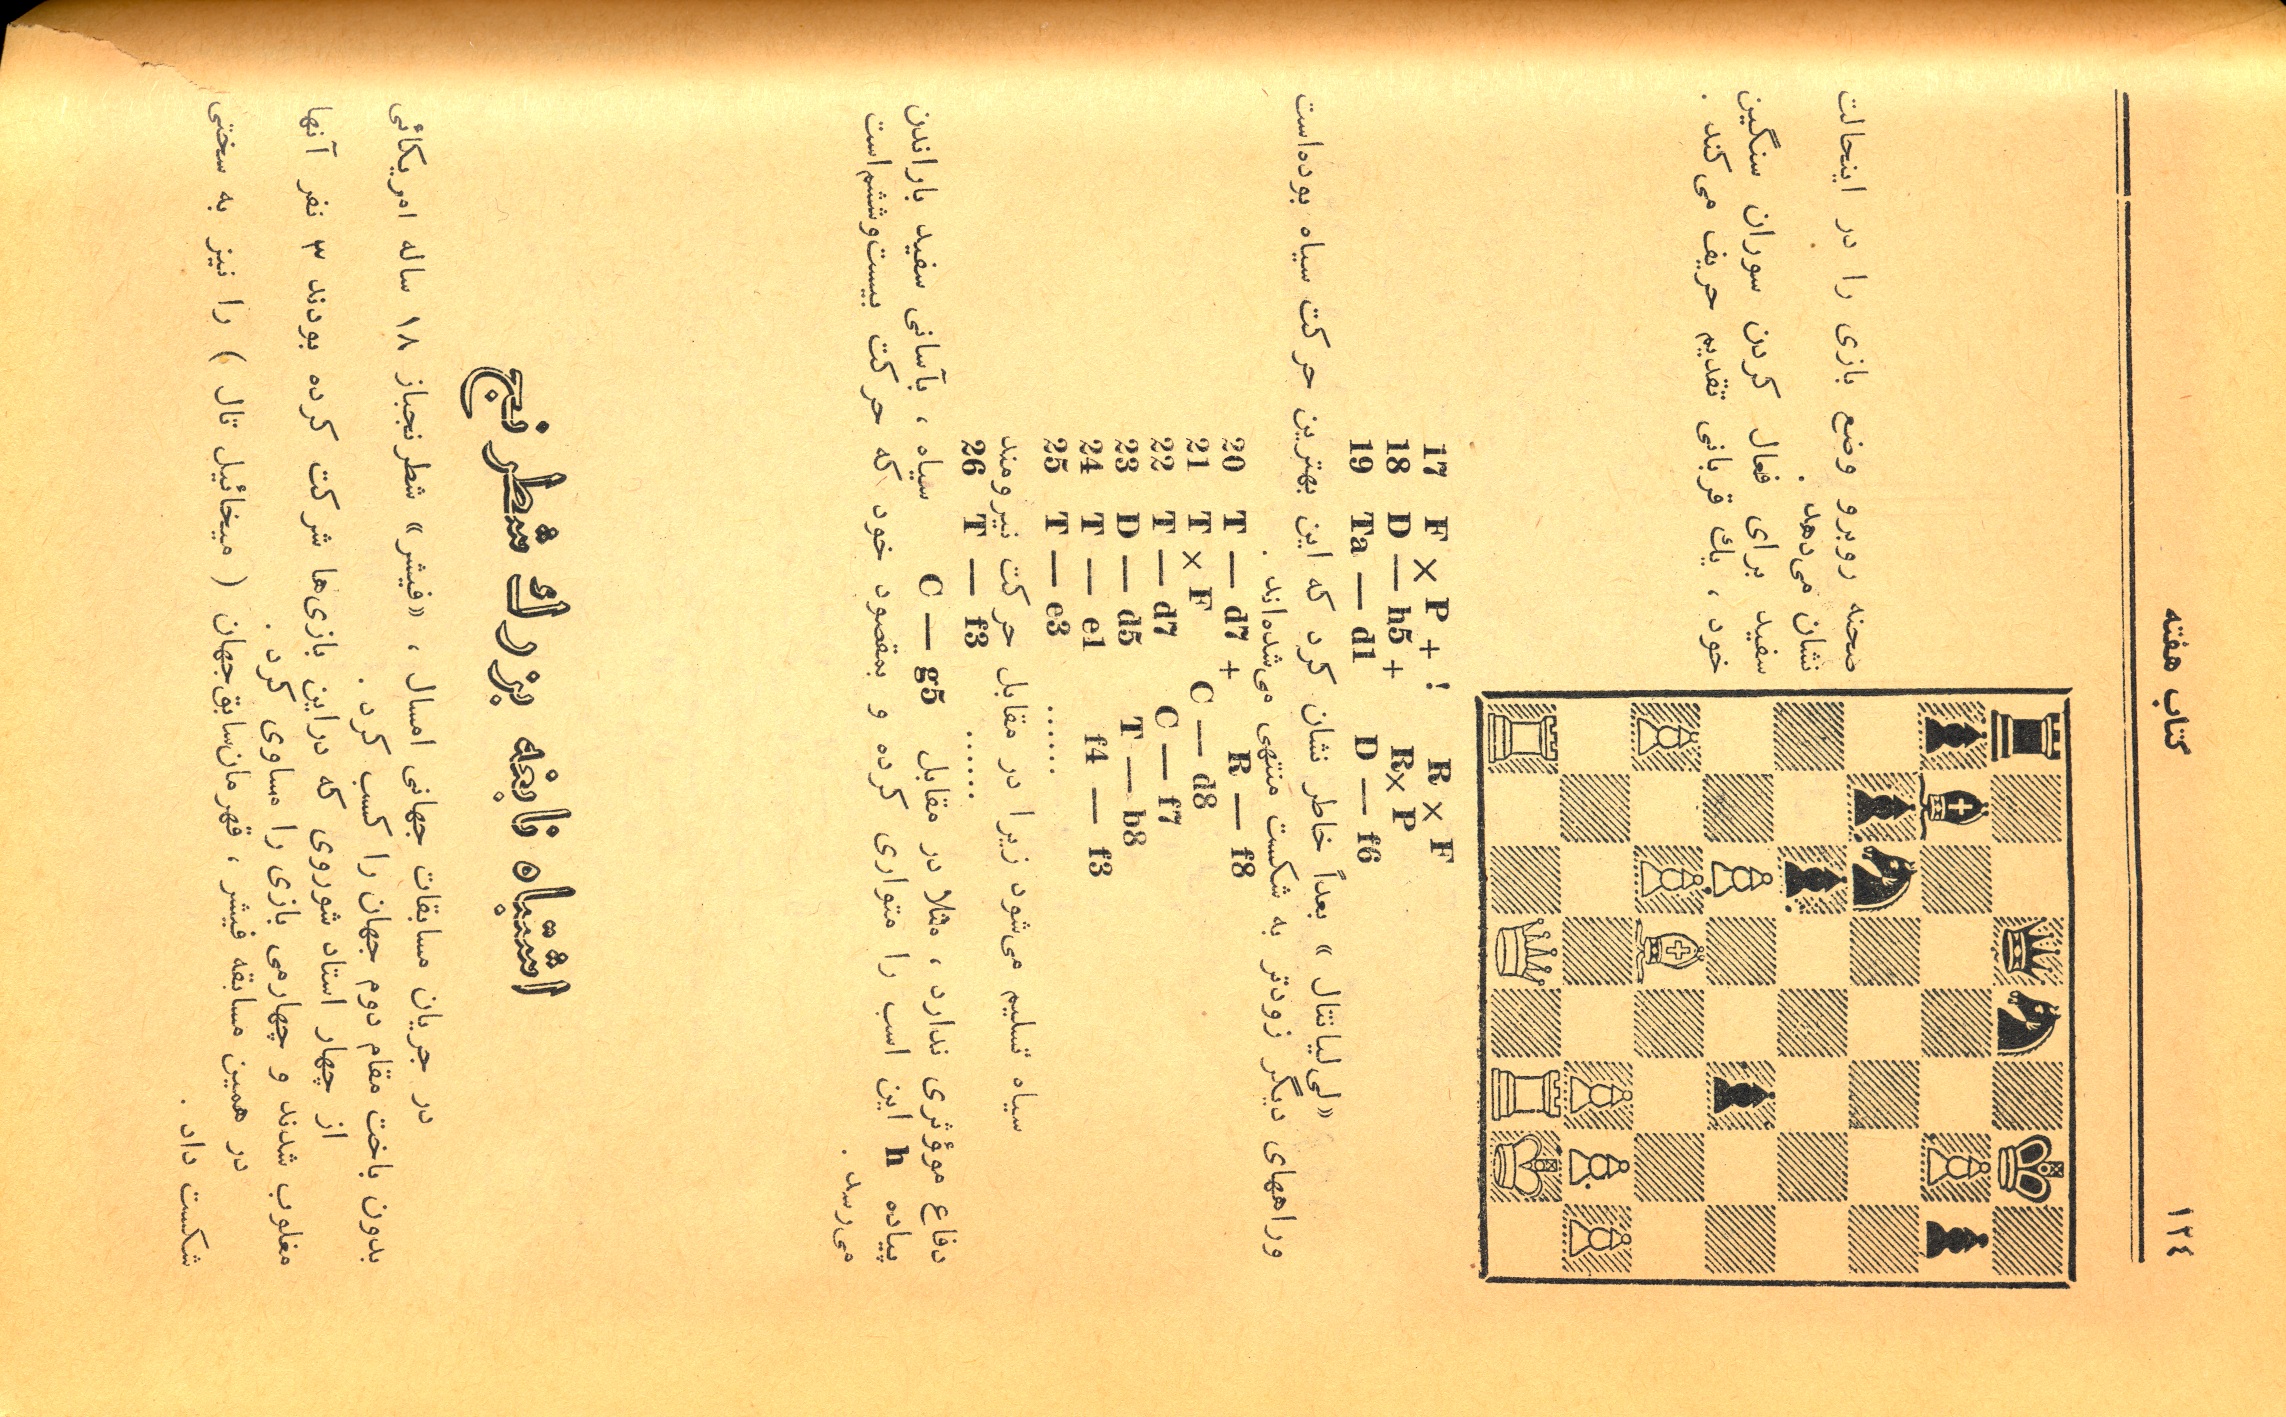 کتاب هفته
۱۲۴
صحنه روبرو وضع بازی را در اینحالت
نشان می‌دهد .
سفید برای فعال کردن سوران سنگین
خود ، یك قربانی تقدیم حریف می‌کند .
17 F × P + ! R × F
18 D — h5 + R× P
19 Ta — d1 D — f6
«لی‌لیانتال» بعداً خاطر نشان کرد که این بهترین حرکت سیاه بوده‌است
وراههای دیگر زودتر به شکست منتهی می‌شده‌اند .
20 T — d7 + R — f8
21 T × F C — d8
22 T — d7 C — f7
23 D — d5 T — b8
24 T — e1 f4 — f3
25 T — e3 ......
سیاه تسلیم می‌شود زیرا در مقابل حرکت نیرومند
26 T — f3 ......
دفاع مؤثری ندارد ، مثلا در مقابل C — g5 سیاه ، بآسانی سفید باراندن
پیاده h این اسب را متواری کرده و بمقصود خود که حرکت بیست‌وششم‌است
می‌رسد .
اشتباه نابغه بزرك شطرنج
در جریان مسابقات جهانی امسال ، «فیشر» شطرنجباز ۱۸ ساله امریکائی
بدون باخت مقام دوم جهان را کسب کرد .
از چهار استاد شوروی که دراین بازی‌ها شرکت کرده بودند ۳ نفر آنها
مغلوب شدند و چهارمی بازی را مساوی کرد .
در همین مسابقه فیشر ، قهرمان‌سابق‌جهان ( میخائیل تال ) را نیز به سختی
شکست داد .